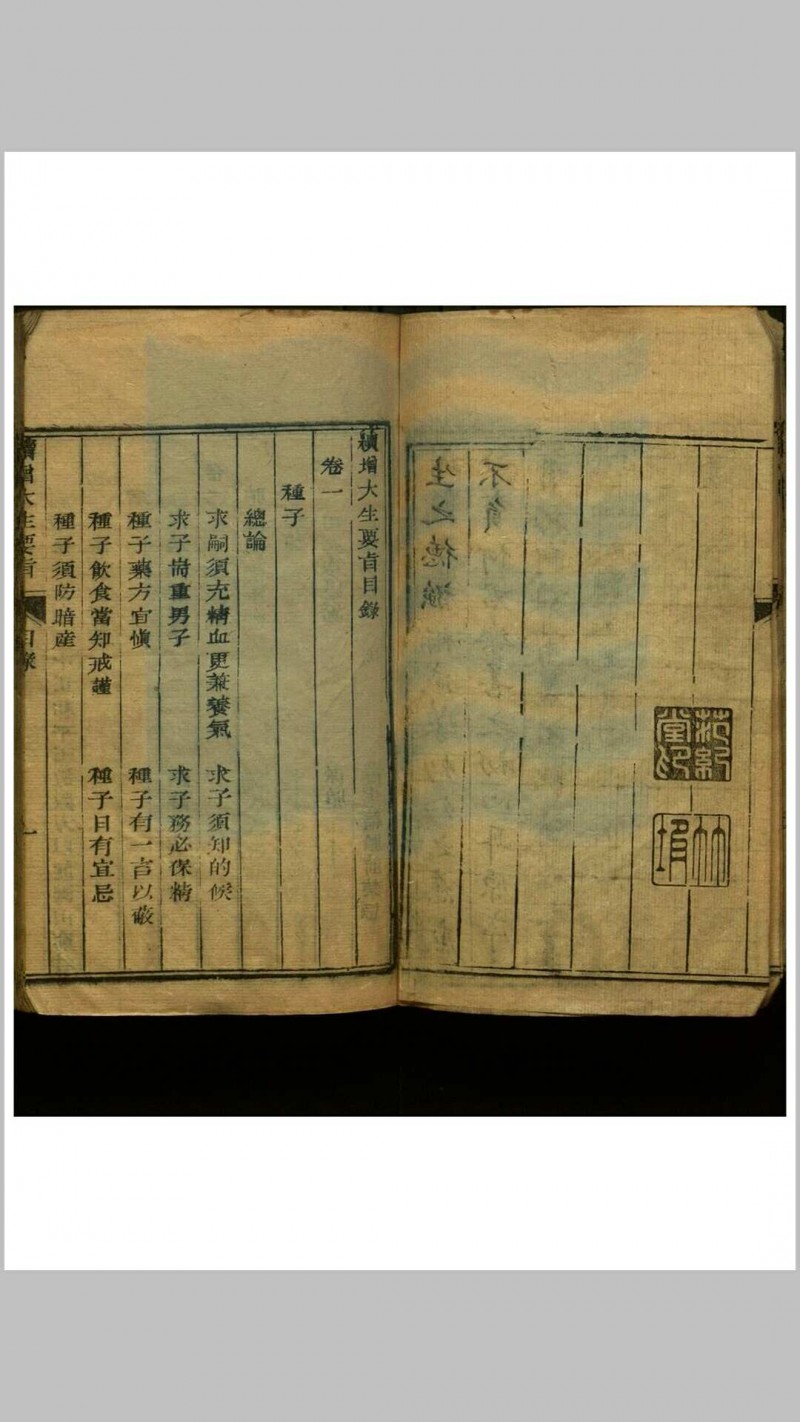 續增大生要旨目錄
卷一
種子
總論
求嗣須充精血更兼養氣　求子須知的候
求子耑重男子　求子務必保精
種子藥方宜愼　種子有一言以蔽
種子飲食當知戒謹　種子日有宜忌
種子須防暗産
續增大生要旨　目錄　一